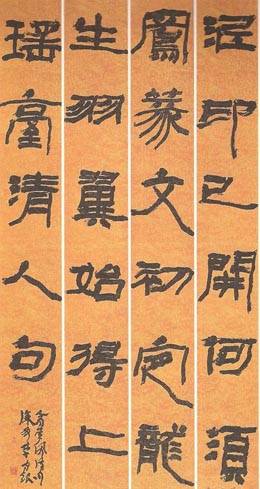 泥印已開何須
寫篆文初定龍
生羽翼始得上
瑤臺清人句